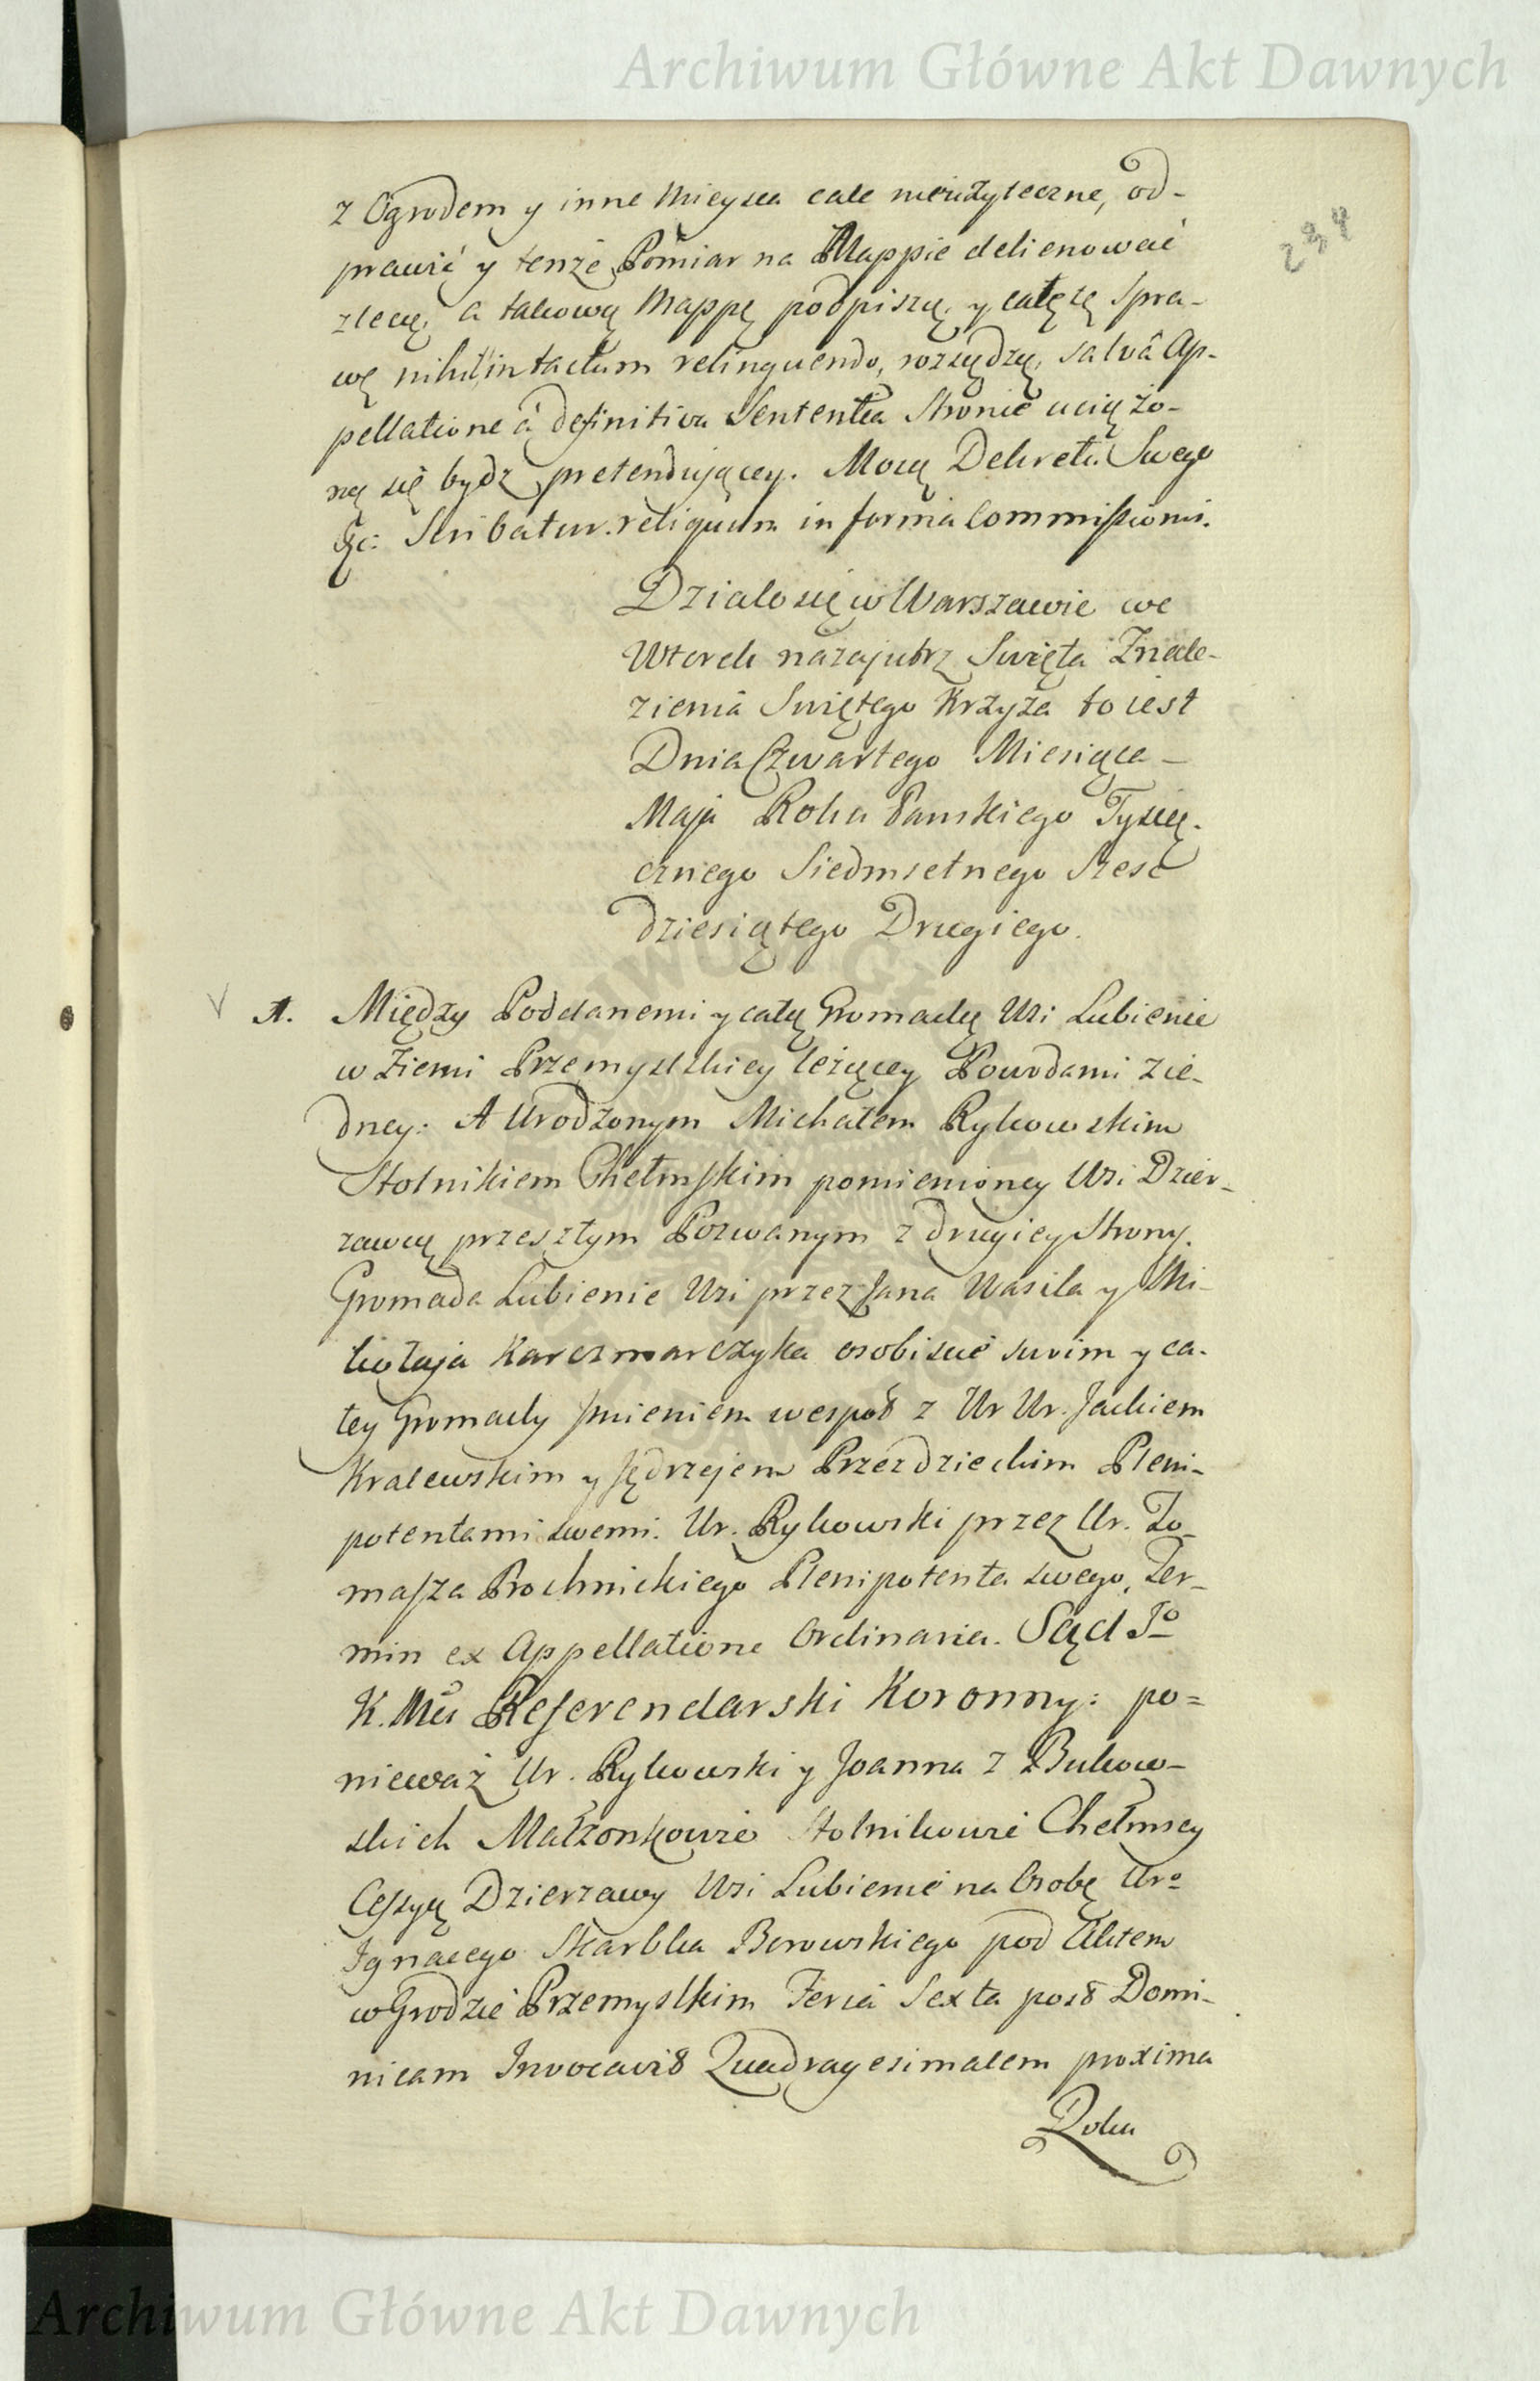 Archiwum Główne Akt Dawnych
234
z Ogrodem y inne Mieysca cale nieużyteczne, od-
prawić y tenże Pomiar na Mappie delienować
zlecą, a takową Mappę podpiszą, y całę tę Spra-
wę nihil intactum relinquendo, rozsądzą, salvâ Ap-
pellatione à definitiva Sententia Stronie uciążo-
ną się bydz pretendującey. Mocą Dekretu Swego
&c: Scribatur reliquum in forma Commissionis.
Działo się w Warszawie we
Wtorek nazajutrz Święta Znale-
zienia Swiętego Krzyża to iest
Dnia Czwartego Miesiąca -
Maja Roku Panskiego Tysią-
cznego Siedmsetnego Szesc
dziesiątego Drugiego.
A. Między Poddanemi y całą Gromadą Wsi Lubienie
w Ziemi Przemyslskiey leżącey Powodami z ie-
dney: A Urodzonym Michałem Rykowskim
Stolnikiem Chełmskim pomienioney Wsi Dzier-
zawcą przeszłym Pozwanym z drugiey Strony.
Gromada Lubienie Wsi przez Jana Wasila y Mi-
kołaja Karczmarczyka osobiscie swim y ca-
łey Gromady Jmieniem wespoł z Ur Ur. Jackiem
Kralewskim y Jędrzejem Przezdzieckim Pleni-
potentami swemi. Ur. Rykowski przez Ur. To-
masza Prochnickiego Plenipotenta swego, Ter-
min ex Appellatione Ordinaria. Sąd Jo
K. Mci Referendarski Koronny: po=
nieważ Ur. Rykowski y Joanna z Bukow-
skich Małżonkowie Stolnikowie Chełmscy
Cessyą Dzierzawy Wsi Lubienie na Osobę Uro
Ignacego Skarbka Borowskiego pod Aktem
w Grodzie Przemyslkim Feria Sexta post Domi-
nicam Invocavit Quadragesimalem proxima
Roku
Archiwum Główne Akt Dawnych